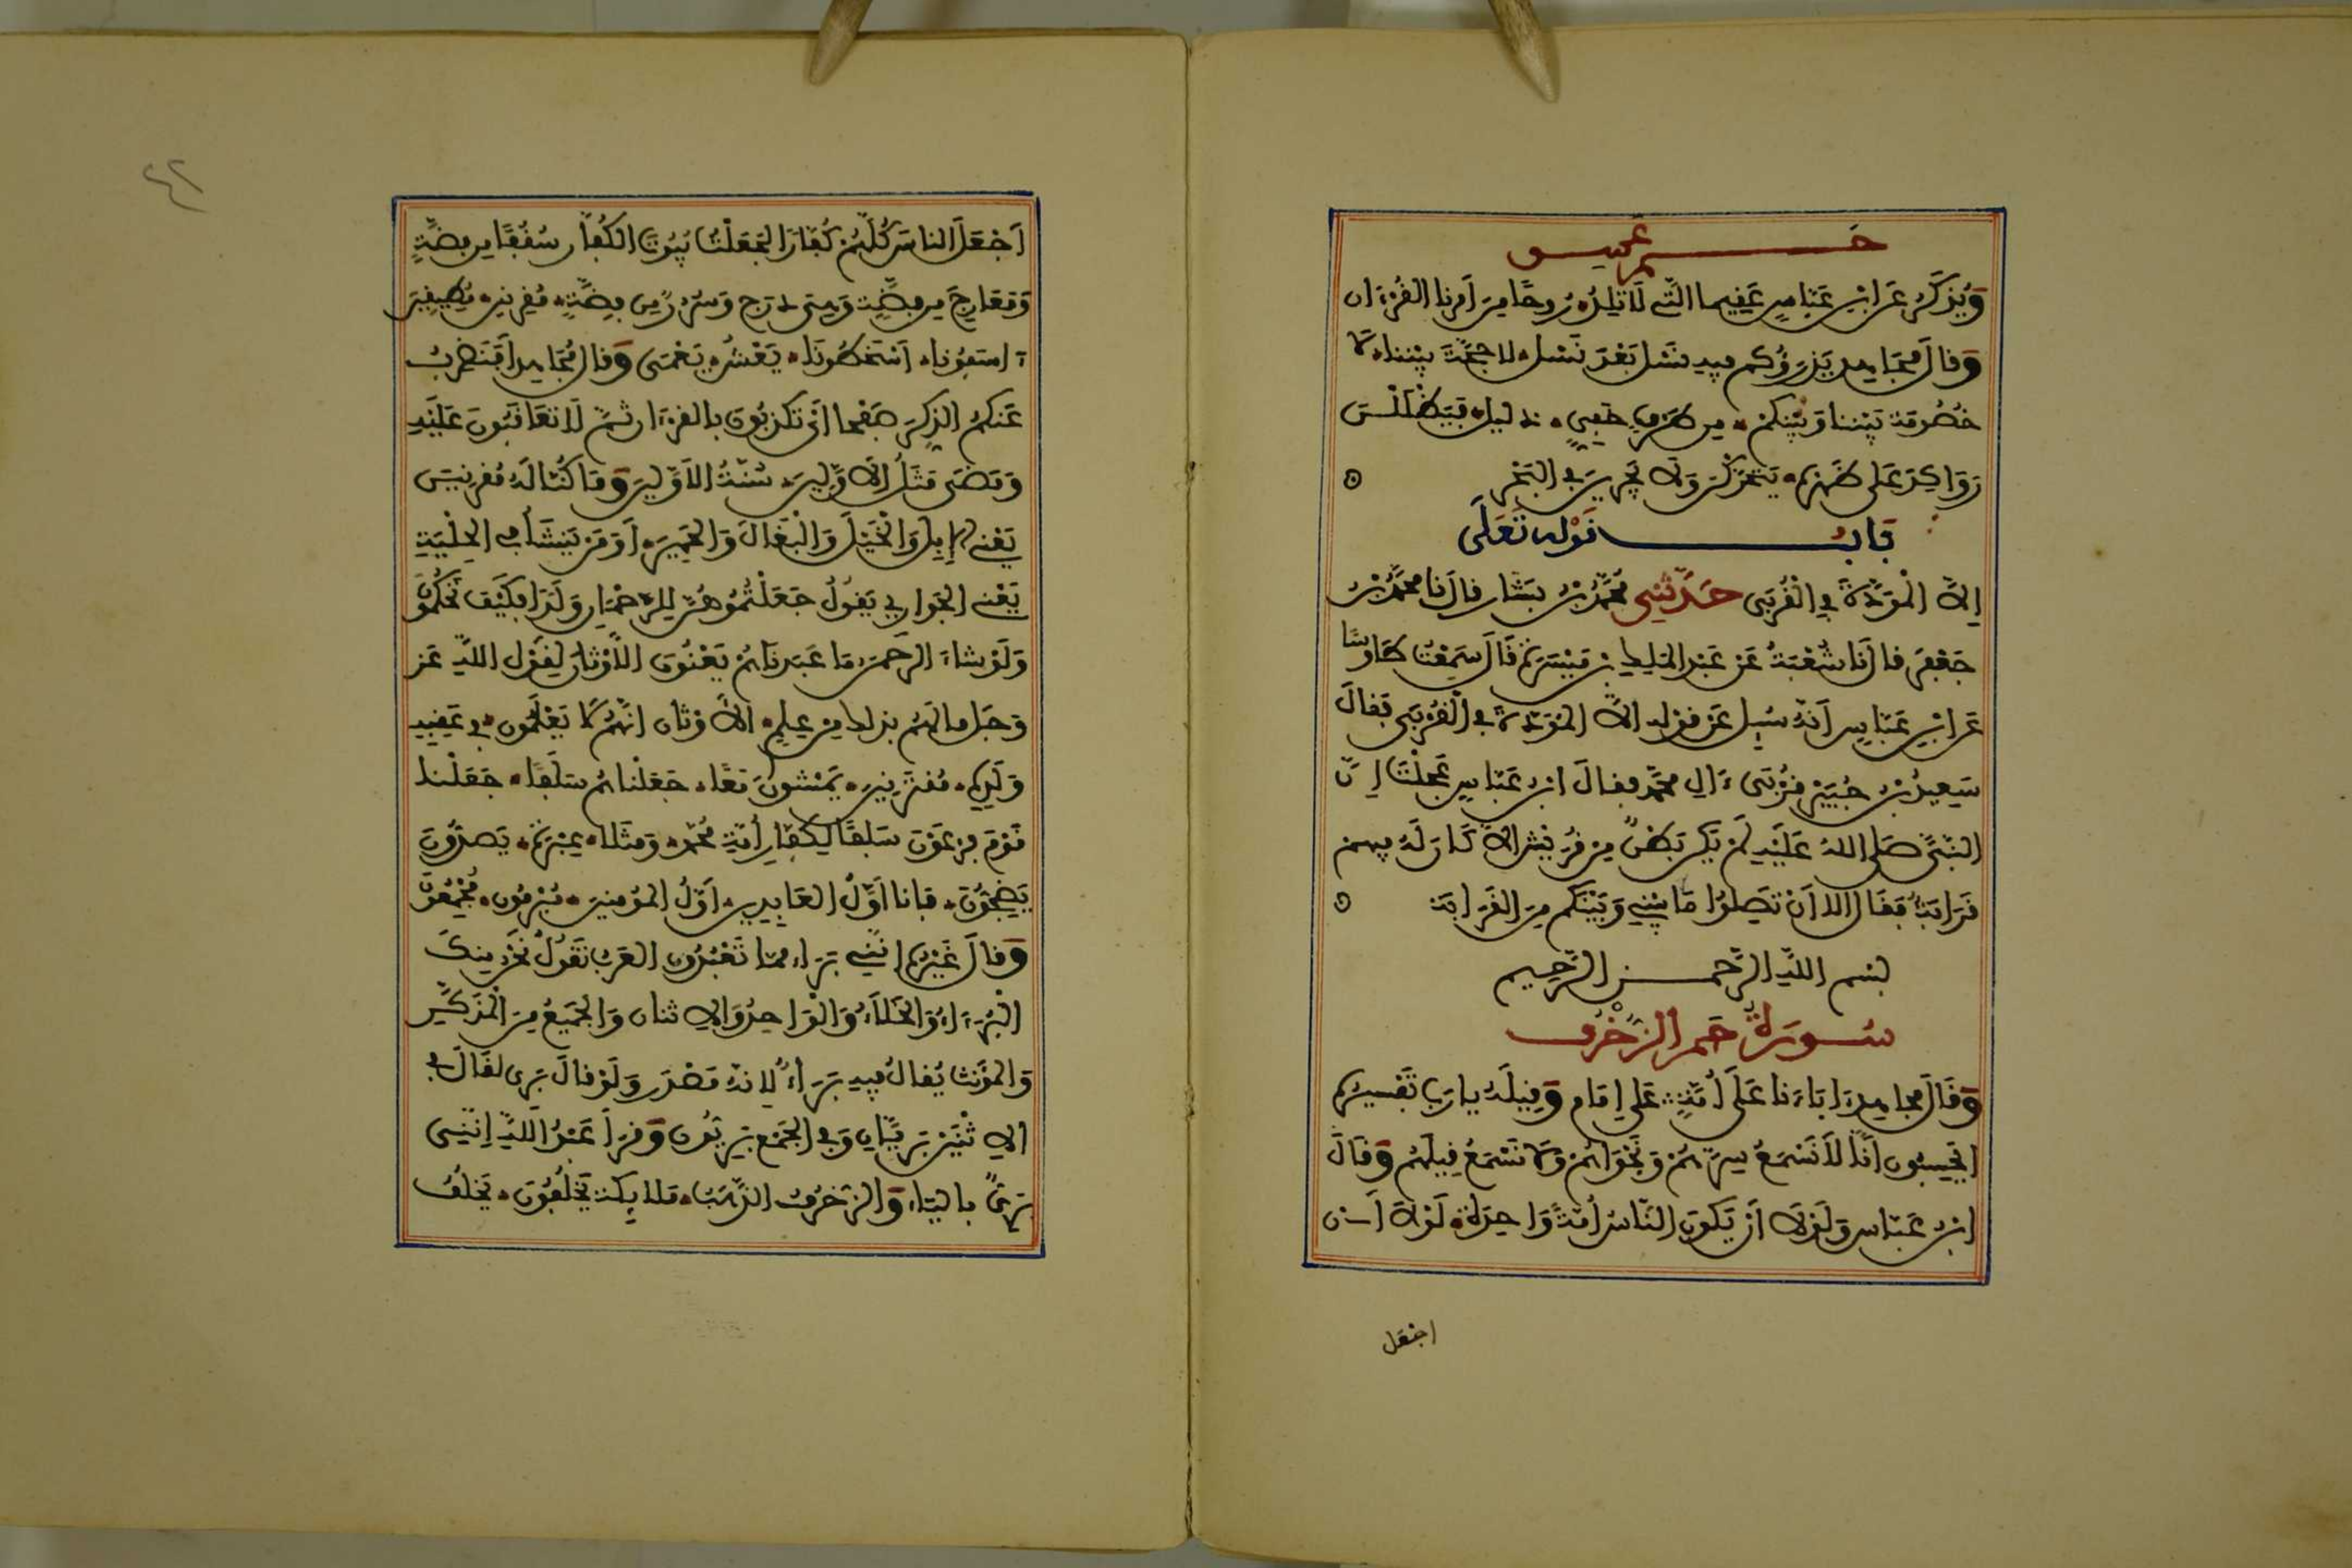 حم عسق
وَيُذْكَرُ عَنِ ابْنِ عَبَّاسٍ عَقِيما الَّتِي لَا تَلِدُ رُوحًا مِنَ امْرِنَا الْقُرْءَان
وَقَالَ مُجَاهِد يَذْرَؤُكم فِيهِ نَسْل بَعْدَ نَسْل لا حُجَّةَ بَيْنَنَا لَا
خُصُومَةَ بَيْنَنَا وَبَيْنَكُمْ مِن طَرْفٍ خَفِيٍّ ذَلِيل فَيَظْلَلْنَ
رَوَاكِدَ عَلَى ظَهْرِهِ يَتَحَرَّكْنَ وَلَا يَجْرِينَ فِي الْبَحْرِ
بَابُ قَوْلِهِ تَعَلَى
إِلَّا الْمَوَدَّةَ فِي الْقُرْبَى حَدَّثَنِي مُحَمَّدُ بْنُ بَشَّار قَالَ نَا مُحَمَّدُ بْنُ
جَعْفَرٍ قَالَ نَا شُعْبَةُ عَنْ عَبْدِ الْمَلِكِ بْنِ مَيْسَرَةَ قَالَ سَمِعْتُ طَاوُسًا
عَنِ ابْنِ عَبَّاسٍ أَنَّهُ سُئِلَ عَنْ قَوْلِهِ الَّا الْمَوَدَّةَ فِي الْقُرْبَى فَقَالَ
سَعِيدُ بْنُ جُبَيْرٍ قُرْبَى ءَالِ مُحَمَّدٍ فَقَالَ ابْنُ عَبَّاسٍ عَجِلْتَ إِنَّ
النَّبِيَّ صَلَى اللهُ عَلَيْهِ لَمْ يَكُن بَطْنٌ مِنْ قُرَيْشٍ الَّا كَانَ لَهُ فِيهِمْ
قَرَابَةٌ فَقَالَ الَّا أَنْ تَصِلُوا مَا بَيْنِي وَبَيْنَكُم مِنَ الْقَرَابَةِ
بسم اللهِ الرَّحْمَنِ الرَّحِيمِ
سُورَةُ حَم الزُّخْرُف
وَقَالَ مُجَاهِد ءَابَاءَنَا عَلَى أُمَّةٍ عَلَى إِمَام وَقِيلَهُ يَا رَبِّ تَفْسِيرُهُ
ايَحْسِبُونَ أَنَّا لَا نَسْمَعُ سِرَّهُمْ وَنَجْوَاهُمْ وَلَا نَسْمَعُ قِيلَهُمْ وَقَالَ
ابْنُ عَبَّاسٍ وَلَوْلَا أَنْ يَكُونَ النَّاسُ أُمَّةً وَاحِدَةً لَوْلَا أَن
اجْعَل
٤٢
اَجْعَلَ النَّاسَ كُلَّهُمْ كُفَّارًا لَجَعَلْتُ بُيُوتَ الْكُفَّارِ سُقُفًا مِن فِضَّةٍ
وَمَعَارِجَ مِن فِضَّةٍ وَهِيَ دَرَج وَسُرُرً مِن فِضَّةٍ مُقْرِنِينَ مُطِيقِينَ
ءَاسَفُونَا أَسْخَطُونَا يَعْشُ يَعْمَى وَقَالَ مُجَاهِد أَفَنَضْرِبُ
عَنكُمُ الذِّكْرَ صَفْحًا أَيْ تُكَذِّبُونَ بِالْقُرْءَانِ ثُمَّ لَا تُعَاقَبُونَ عَلَيْهِ
وَمَضَى مَثَلُ الْأَوَّلِينَ سُنَّةُ الْأَوَّلِينَ وَمَا كُنَّا لَهُ مُقْرِنِينَ
يَعْنِي الْإِبِلَ وَالْخَيْلَ وَالْبِغَالَ وَالْحَمِيرَ أَوَمَنْ يَنْشَأُ فِي الْحِلْيَةِ
يَعْنِي الْجَوَارِيَ يَقُولُ جَعَلْتُمُوهُنَّ لِلرَّحْمَنِ وَلَدًا فَكَيْفَ تَحْكُمُونَ
وَلَوْ شَاءَ الرَّحْمَنُ مَا عَبَدْنَاهُمْ يَعْنُونَ الْأَوْثَانَ لِقَوْلِ اللهِ عَزَّ
وَجَلَّ مَا لَهُمْ بِذَلِكَ مِنْ عِلْمٍ الْأَوْثَانُ انَّهُمْ لَا يَعْلَمُونَ فِي عَقِبِهِ
وَلَدِهِ مُقْتَرِنِينَ يَمْشُونَ مَعًا جَعَلْنَاهُمْ سَلَفًا جَعَلْنَا
قَوْمَ فِرْعَوْنَ سَلَفًا لِكُفَّارِ أُمَّةِ مُحَمَّدٍ وَمَثَلًا عِبْرَةً يَصِدُّونَ
يَضِجُّونَ فَأَنَا أَوَّلُ الْعَابِدِينَ أَوَّلُ الْمُؤْمِنِينَ مُبْرِمُونَ مُجْمِعُونَ
وَقَالَ غَيْرُهُ انَّنِي بَرَاء مِمَّا تَعْبُدُونَ الْعَرَبُ تَقُولُ نَحْنُ مِنكَ
الْبَرَاءُ وَالْخَلَاءُ وَالْوَاحِدُ وَالِاثْنَانِ وَالْجَمِيعُ مِنَ الْمُذَكَّرِ
وَالْمُؤَنَّثِ يُقَالُ فِيهِ بَرَاءٌ لِأَنَّهُ مَصْدَر وَلَوْ قَالَ بَرِي لَقَالَ فِي
الِاثْنَيْنِ بَرِيَّانِ وَفِي الْجَمْعِ بَرِيُّونَ وَقَرَأَ عَبْدُ اللهِ إِنَّنِي
بَرِيٌّ بِالْيَاءِ وَالزُّخْرُفُ الذَّهَبُ مَلَائِكَةً يَخْلُفُونَ يَخْلُفُ